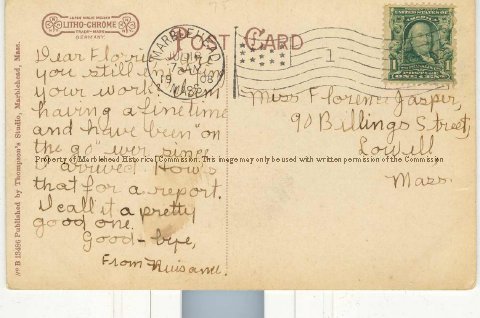 LITHO-CHROME
TRADE-MARK
GERMANY.
POST CARD
MARBLEHEAD
MASS.
1
ONE
Dear Florrie
you still
your work.
having a fine time
and have been "on
the go" ever since
I arrived. How's
that for a report.
I call it a pretty
good one.
Good-bye,
From
Miss Florence Jasper,
90 Billings Street,
Lowell
Mass.
Property of Marblehead Historical Commission. This image may only be used with written permission of the Commission
No B 13486 Published by Thompson's Studio, Marblehead, Mass.